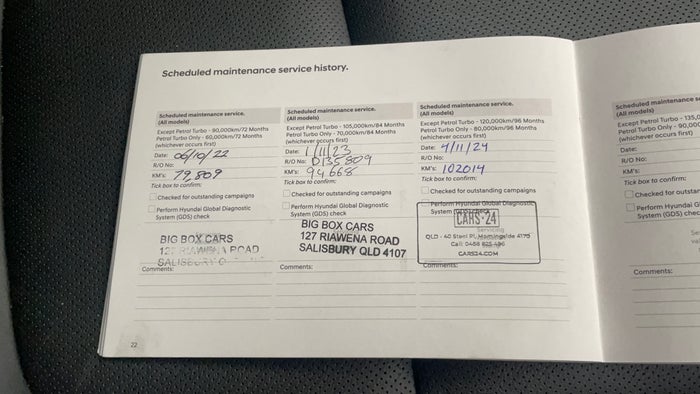 Scheduled maintenance service history.
Scheduled maintenance service.
(All models)
Except Petrol Turbo - 90,000km/72 Months
Petrol Turbo Only - 60,000km/72 Months
(whichever occurs first)
Date: 06/10/22
R/O No:
KM's: 79,809
Tick box to confirm:
Checked for outstanding campaigns
Perform Hyundai Global Diagnostic
System (GDS) check
BIG BOX CARS
Comments:
Scheduled maintenance service.
(All models)
Except Petrol Turbo - 105,000km/84 Months
Petrol Turbo Only - 70,000km/84 Months
(whichever occurs first)
Date: 1/11/23
R/O No: D135809
KM's: 94668
Tick box to confirm:
Checked for outstanding campaigns
Perform Hyundai Global Diagnostic
System (GDS) check
BIG BOX CARS
127 RIAWENA ROAD
SALISBURY QLD 4107
Comments:
Scheduled maintenance service.
(All models)
Except Petrol Turbo - 120,000km/96 Months
Petrol Turbo Only - 80,000km/96 Months
(whichever occurs first)
Date: 4/11/24
R/O No:
KM's: 102014
Tick box to confirm:
Checked for outstanding campaigns
Perform Hyundai Global Diagnostic
System
CARS24
Servicing
QLD - 40 Steel Pl, Morningside 4170
Call: 0488 825 496
CARS24.COM
Comments:
22
Scheduled maintenance
(All models)
Except Petrol Turbo
Petrol Turbo Only - 90,00
(whichever occurs first)
Date:
R/O No:
KM's:
Tick box to confirm:
Checked for outst
Perform Hyundai
System (GDS) che
Comments: